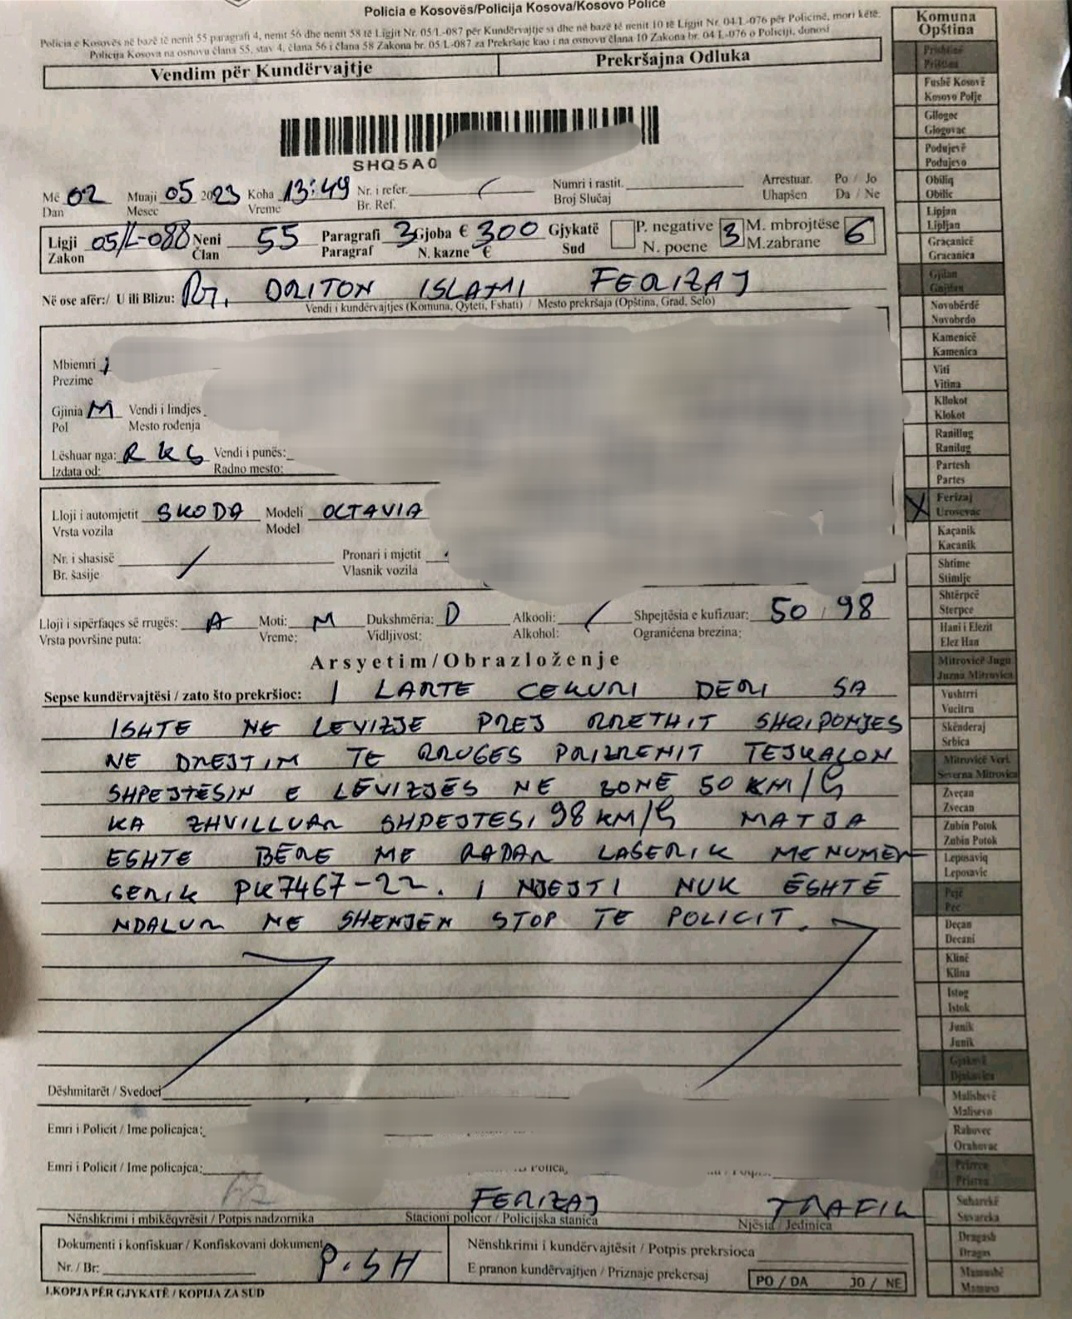 Policia e Kosovës/Policija Kosova/Kosovo Police
Policia e Kosovës në bazë të nenit 55 paragrafi 4, nenit 56 dhe nenit 58 të Ligjit Nr. 05/L-087 për Kundërvajtje si dhe në bazë të nenit 10 të Ligjit Nr. 04/L-076 për Policinë, mori këtë:
Policija Kosova na osnovu člana 55, stav 4, člana 56 i člana 58 Zakona br. 05 L-087 za Prekršaje kao i na osnovu člana 10 Zakona br. 04 L-076 o Policiji, donosi
Vendim për Kundërvajtje Prekršajna Odluka
SHQ5A0
Më 02 Muaji 05 2023 Koha 13:49 Nr. i refer. Numri i rastit. Arrestuar. Po / Jo
Dan Mesec Vreme Br. Ref. Broj Slučaj Uhapšen Da / Ne
Ligji 05/L-088 Neni 55 Paragrafi 3 Gjoba € 300 Gjykatë P. negative 3 M. mbrojtëse 6
Zakon Član Paragraf N. kazne € Sud N. poene M.zabrane
Në ose afër:/ U ili Blizu: RR. DRITON ISLAMI FERIZAJ
Vendi i kundërvajtjes (Komuna, Qyteti, Fshati) / Mesto prekršaja (Opština, Grad, Selo)
Mbiemri
Prezime
Gjinia M Vendi i lindjes
Pol Mesto rođenja
Lëshuar nga: RKS Vendi i punës:
Izdata od: Radno mesto:
Lloji i automjetit SKODA Modeli OCTAVIA
Vrsta vozila Model
Nr. i shasisë / Pronari i mjetit
Br. šasije Vlasnik vozila
Lloji i sipërfaqes së rrugës: A Moti: M Dukshmëria: D Alkooli: / Shpejtësia e kufizuar: 50 / 98
Vrsta površine puta: Vreme: Vidljivost: Alkohol: Ograničena brezina:
Arsyetim/Obrazloženje
Sepse kundërvajtësi / zato što prekršioc: I LARTE CEKURI DERI SA
ISHTE NE LEVIZJE PREJ RRETHIT SHQIPONJES
NE DREJTIM TE RRUGES PRIZRENIT TEJKALON
SHPEJTËSIN E LËVIZJËS NE ZONË 50 KM/H
KA ZHVILLUAR SHPEJTESI 98 KM/H MATJA
ESHTE BËRE ME RADAR LASERIK ME NUMER
SERIK PK7467-22. I NJEJTI NUK ËSHTË
NDALUR NE SHENJËN STOP TE POLICIT.
Dëshmitarët / Svedoci
Emri i Policit / Ime policajca:
Emri i Policit / Ime policajca:
FERIZAJ TRAFIK
Nënshkrimi i mbikëqyrësit / Potpis nadzornika Stacioni policor / Policijska stanica Njësia / Jedinica
Dokumenti i konfiskuar / Konfiskovani dokument P.SH Nënshkrimi i kundërvajtësit / Potpis prekrsioca
Nr. / Br: E pranon kundërvajtjen / Priznaje prekersaj PO / DA JO / NE
I.KOPJA PËR GJYKATË / KOPIJA ZA SUD
Komuna
Opština
Prishtinë
Priština
Fushë Kosovë
Kosovo Polje
Gllogoc
Glogovac
Podujevë
Podujevo
Obiliq
Obilic
Lipjan
Lipljan
Graçanicë
Gracanica
Gjilan
Gnjilan
Novobërdë
Novobrdo
Kamenicë
Kamenica
Viti
Vitina
Kllokot
Klokot
Ranillug
Ranilug
Partesh
Partes
X Ferizaj
Urosevac
Kaçanik
Kacanik
Shtime
Stimlje
Shtërpcë
Sterpce
Hani i Elezit
Elez Han
Mitrovicë Jugu
Juzna Mitrovica
Vushtrri
Vucitrn
Skënderaj
Srbica
Mitrovicë Veri
Severna Mitrovica
Zveçan
Zvecan
Zubin Potok
Zubin Potok
Leposaviq
Leposavic
Pejë
Pec
Deçan
Decani
Klinë
Klina
Istog
Istok
Junik
Junik
Gjakovë
Djakovica
Malishevë
Malisevo
Rahovec
Orahovac
Suharekë
Suvareka
Dragash
Dragas
Mamushë
Mamusa